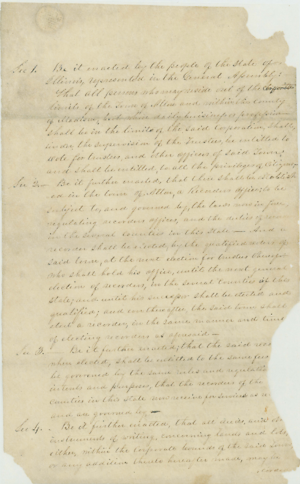 Sec 1. Be it enacted by the people of the State of
Illinois, represented in the General Assembly,
That all persons who may reside out of the
limits of the Town of Alton and within the County
of Madison,
shall be in the limits of the said Corporation, shall,
under the supervision of the Trustees, be entitled to
vote for trustees, and other officers of said Town,
and shall be entitled to all the privileges of
Sec 2. Be it further enacted, that there shall be
in the town of Alton, a Recorders office, to be
subject to, and governed by, the laws now in force,
regulating recorders offices, and the duties of
in the several counties in this State — And a
recorder shall be elected, by the qualified voters of
said town, at the next election for trustees thereof
who shall hold his office, until the next general
election of recorders, in the several Counties of this
State, and until his successor shall be elected and
qualified; and thereafter, the said town shall
elect a recorder, in the same manner and time
of electing recorders as aforesaid —
Sec 3. — Be it further enacted, that the said
when elected, shall be entitled to the same fees
be governed by the same rules and
intents and purposes, that the recorders of the
counties in this State now receive for services
and are governed by —
Sec 4. — Be it further enacted, that all deeds, and
instruments of writing, concerning houses and lots,
either, within the corporate bounds of the said
or any addition thereto made, may